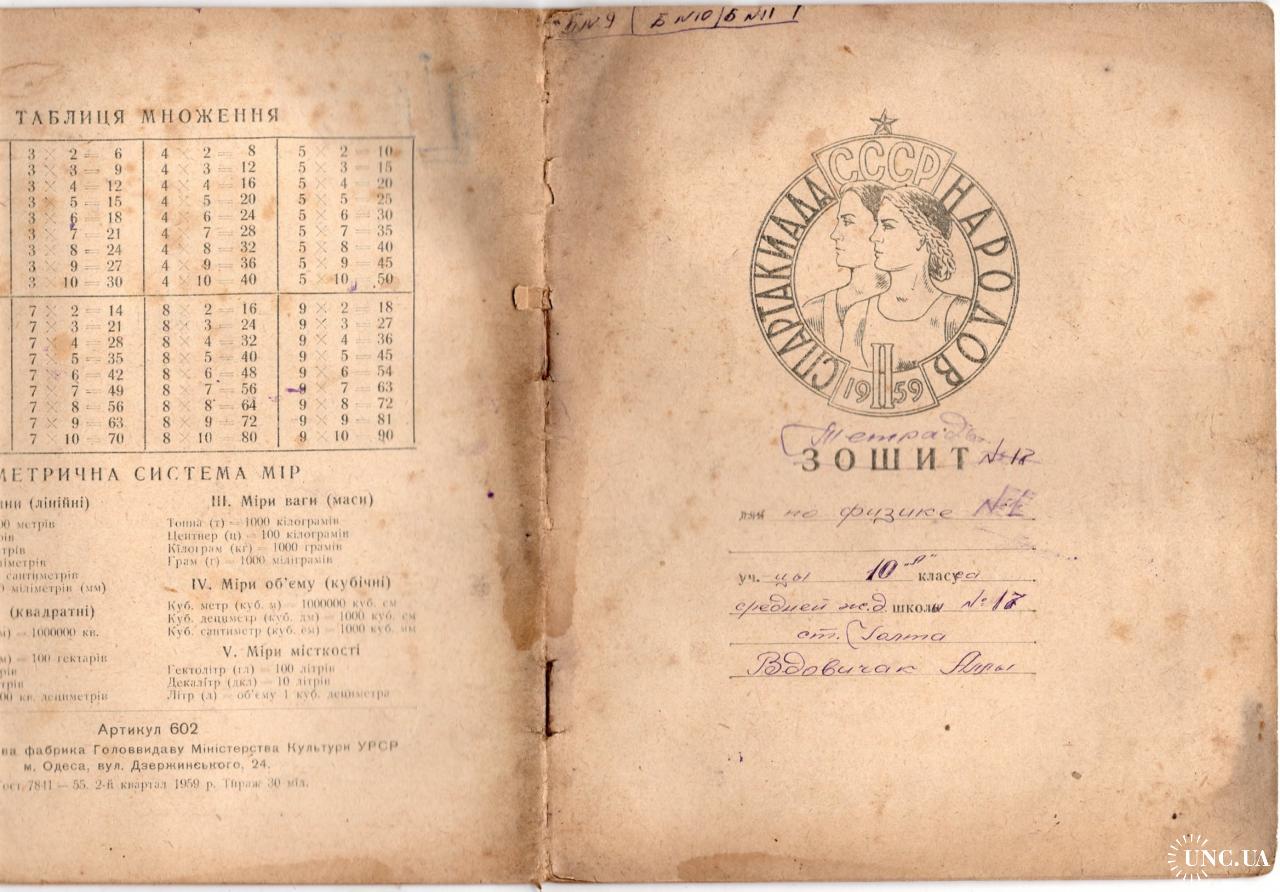 ТАБЛИЦЯ МНОЖЕННЯ
3 × 2 = 6 4 × 2 = 8 5 × 2 = 10
3 × 3 = 9 4 × 3 = 12 5 × 3 = 15
3 × 4 = 12 4 × 4 = 16 5 × 4 = 20
3 × 5 = 15 4 × 5 = 20 5 × 5 = 25
3 × 6 = 18 4 × 6 = 24 5 × 6 = 30
3 × 7 = 21 4 × 7 = 28 5 × 7 = 35
3 × 8 = 24 4 × 8 = 32 5 × 8 = 40
3 × 9 = 27 4 × 9 = 36 5 × 9 = 45
3 × 10 = 30 4 × 10 = 40 5 × 10 = 50
7 × 2 = 14 8 × 2 = 16 9 × 2 = 18
7 × 3 = 21 8 × 3 = 24 9 × 3 = 27
7 × 4 = 28 8 × 4 = 32 9 × 4 = 36
7 × 5 = 35 8 × 5 = 40 9 × 5 = 45
7 × 6 = 42 8 × 6 = 48 9 × 6 = 54
7 × 7 = 49 8 × 7 = 56 9 × 7 = 63
7 × 8 = 56 8 × 8 = 64 9 × 8 = 72
7 × 9 = 63 8 × 9 = 72 9 × 9 = 81
7 × 10 = 70 8 × 10 = 80 9 × 10 = 90
МЕТРИЧНА СИСТЕМА МІР
(лінійні)
метрів
сантиметрів
міліметрів (мм)
(квадратні)
= 1000000 кв.
= 100 гектарів
кв. дециметрів
III. Міри ваги (маси)
Тонна (т) = 1000 кілограмів
Центнер (ц) = 100 кілограмів
Кілограм (кг) = 1000 грамів
Грам (г) = 1000 міліграмів
IV. Міри об'єму (кубічні)
Куб. метр (куб. м) = 1000000 куб. см
Куб. дециметр (куб. дм) = 1000 куб. см
Куб. сантиметр (куб. см) = 1000 куб. мм
V. Міри місткості
Гектолітр (гл) = 100 літрів
Декалітр (дкл) = 10 літрів
Літр (л) = об'єму 1 куб. дециметра
Артикул 602
фабрика Головвидаву Міністерства Культури УРСР
м. Одеса, вул. Дзержинського, 24.
7841 — 55. 2-й квартал 1959 р. Тираж 30 міл.
Б №9 Б №10 Б №11
СССР
СПАРТАКИАДА НАРОДОВ
II
1959
Тетрадь
ЗОШИТ №17
по физике №1
уч. цы 10 класса
средней ж.д. школы №17
ст. Голта
Вдовичак Аллы
UNC.UA